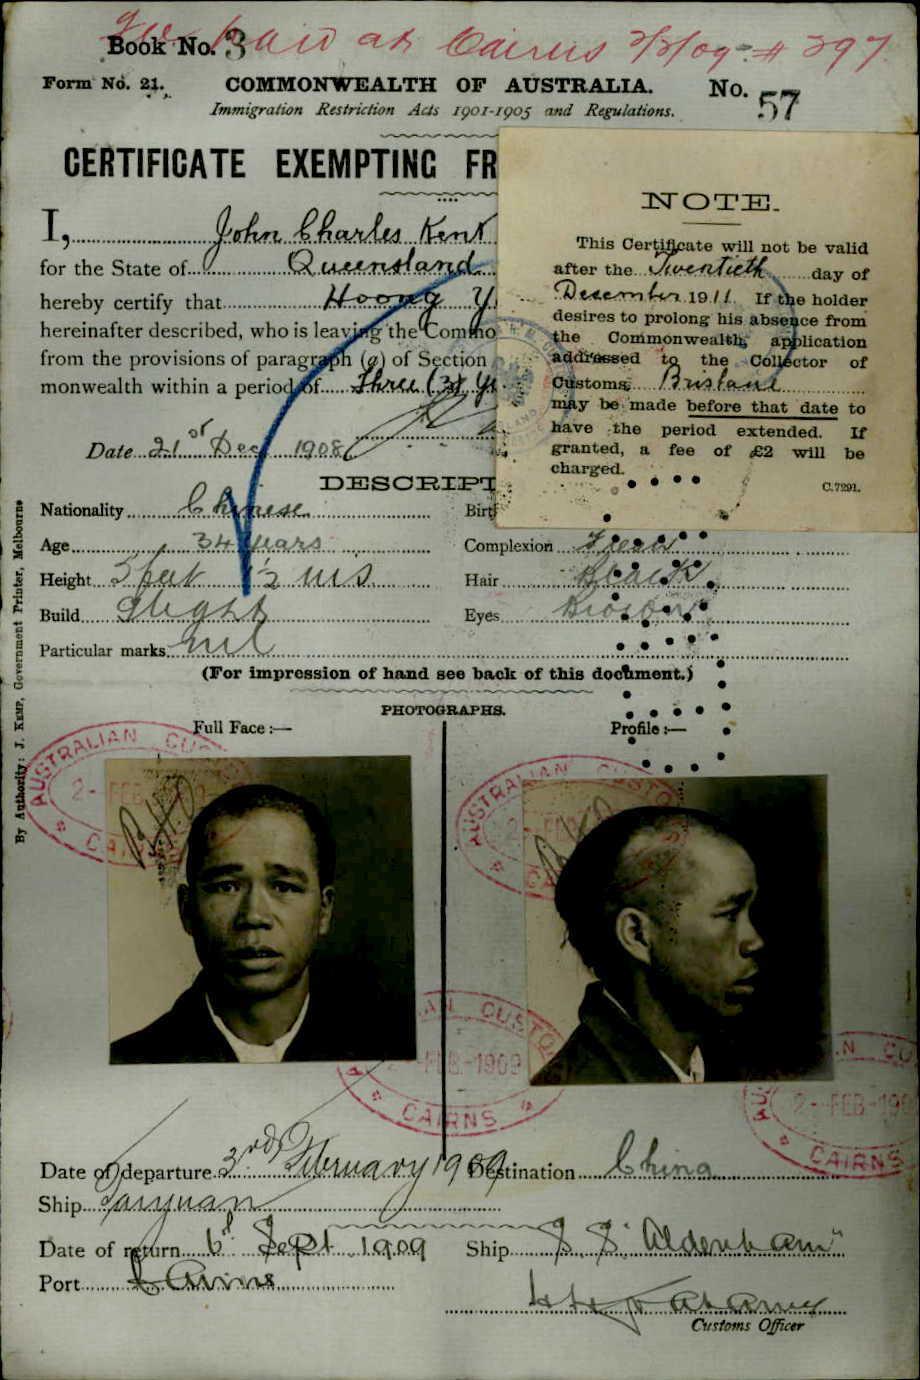 paid at Cairns 3/2/09 # 397
Book No. 3
Form No. 21.
COMMONWEALTH OF AUSTRALIA.
No. 57
Immigration Restriction Acts 1901-1905 and Regulations.
CERTIFICATE EXEMPTING FR
I, John Charles Kent
for the State of Queensland
hereby certify that Hoong Y
hereinafter described, who is leaving the Commo
from the provisions of paragraph (a) of Section
monwealth within a period of Three (3) Ye
Date 21st Dec 1908
NOTE.
This Certificate will not be valid
after the Twentieth day of
December 1911. If the holder
desires to prolong his absence from
the Commonwealth, application
addressed to the Collector of
Customs, Brisbane
may be made before that date to
have the period extended. If
granted, a fee of £2 will be
charged.
C.7291.
DESCRIPT
Nationality Chinese
Birt
Age 34 years
Complexion Fresh
Height 5 feet 1½ ins
Hair Black
Build Slight
Eyes Brown
Particular marks nil
(For impression of hand see back of this document.)
PHOTOGRAPHS.
Full Face :—
Profile :—
By Authority: J. KEMP, Government Printer, Melbourne
AUSTRALIAN CUSTOMS
2-FEB.-1909
CAIRNS
AUSTRALIAN CUSTOMS
2-FEB
CAIRNS
AN CUSTOMS
2-FEB.-1909
CAIRNS
AU N CU
2-FEB-190
CAIRNS
Date of departure 3rd February 1909
Destination China
Ship Taiyuan
Date of return 6th Sept 1909
Ship S. S. "Aldenham"
Port Cairns
Customs Officer